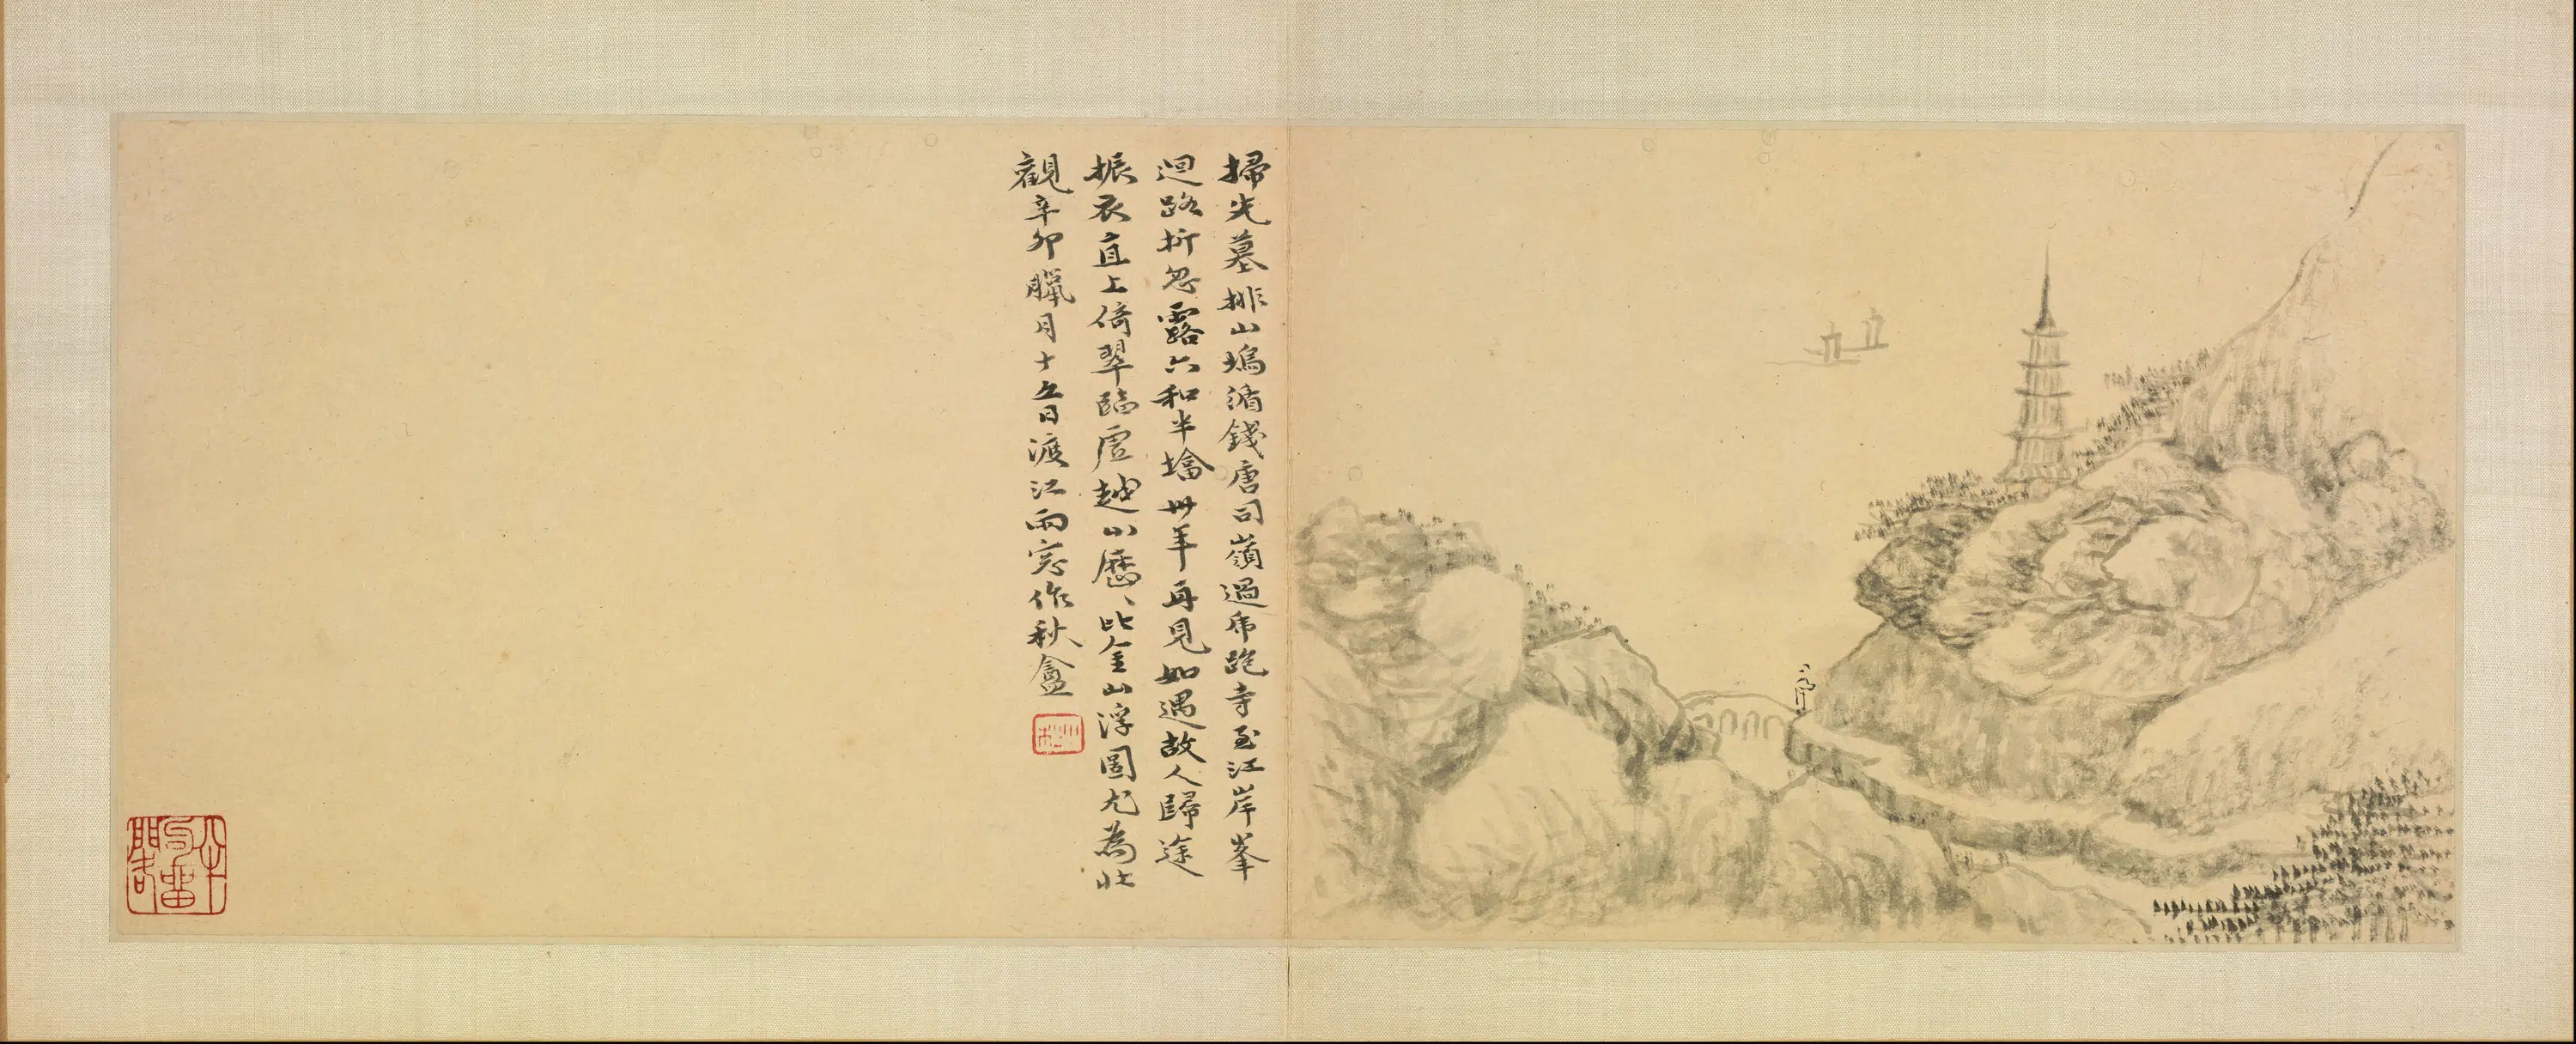 掃先墓排山塢循錢唐司嶺過虎跑寺至江岸峯
迴路折忽露六和半墖卅年再見如遇故人歸途
振衣直上倚翠臨虛越山歷〻比金山浮圖尤為壯
觀辛卯臘月十五日渡江雨窓作秋盦